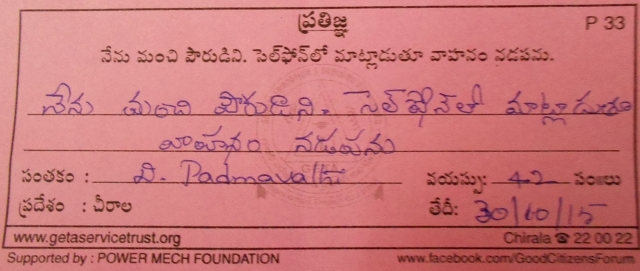 ప్రతిజ్ఞ P 33
నేను మంచి పౌరుడిని. సెల్‌ఫోన్‌లో మాట్లాడుతూ వాహనం నడపను.
నేను మంచి పౌరుడిని. సెల్ ఫోన్‌లో మాట్లాడుతూ
వాహనం నడపను
సంతకం : వి. Padmavathi వయస్సు: 42 సం॥లు
ప్రదేశం : చీరాల తేదీ: 30/10/15
www.getaservicetrust.org Chirala ☎ 22 00 22
Supported by : POWER MECH FOUNDATION www.facebook.com/GoodCitizensForum